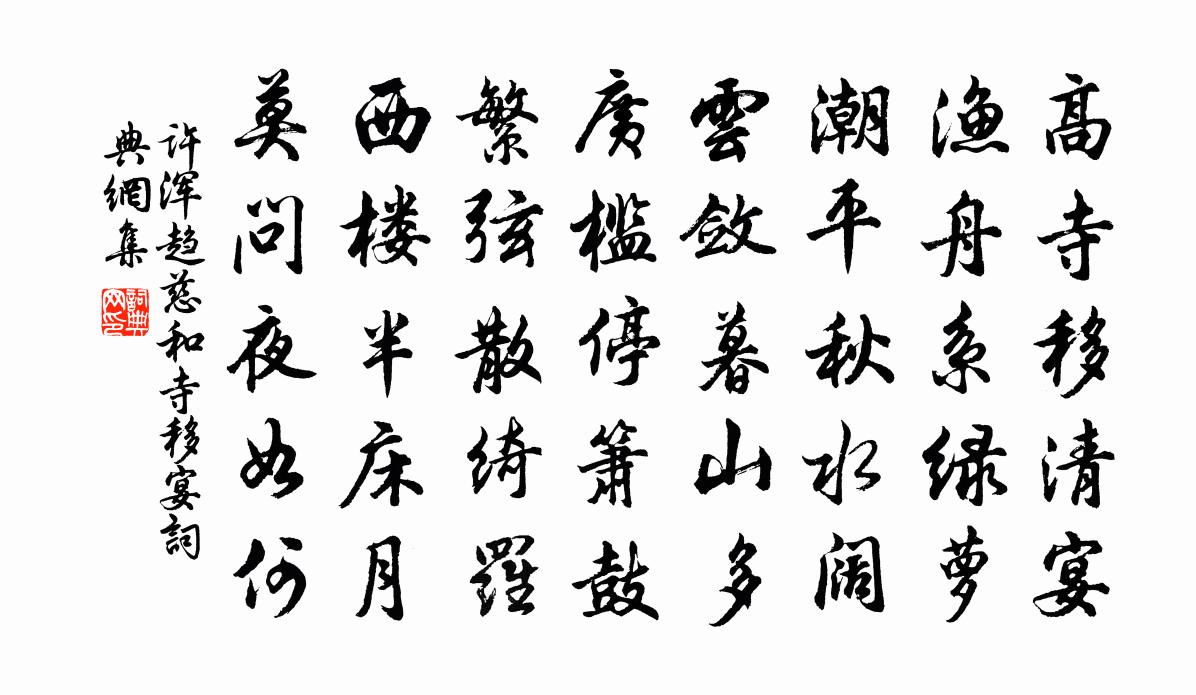 高寺移清宴
渔舟系绿萝
潮平秋水阔
雲敛暮山多
廣槛停箫鼓
繁弦散绮羅
西楼半床月
莫问夜如何
许浑趋慈和寺移宴詞
典網集
詞典
网印